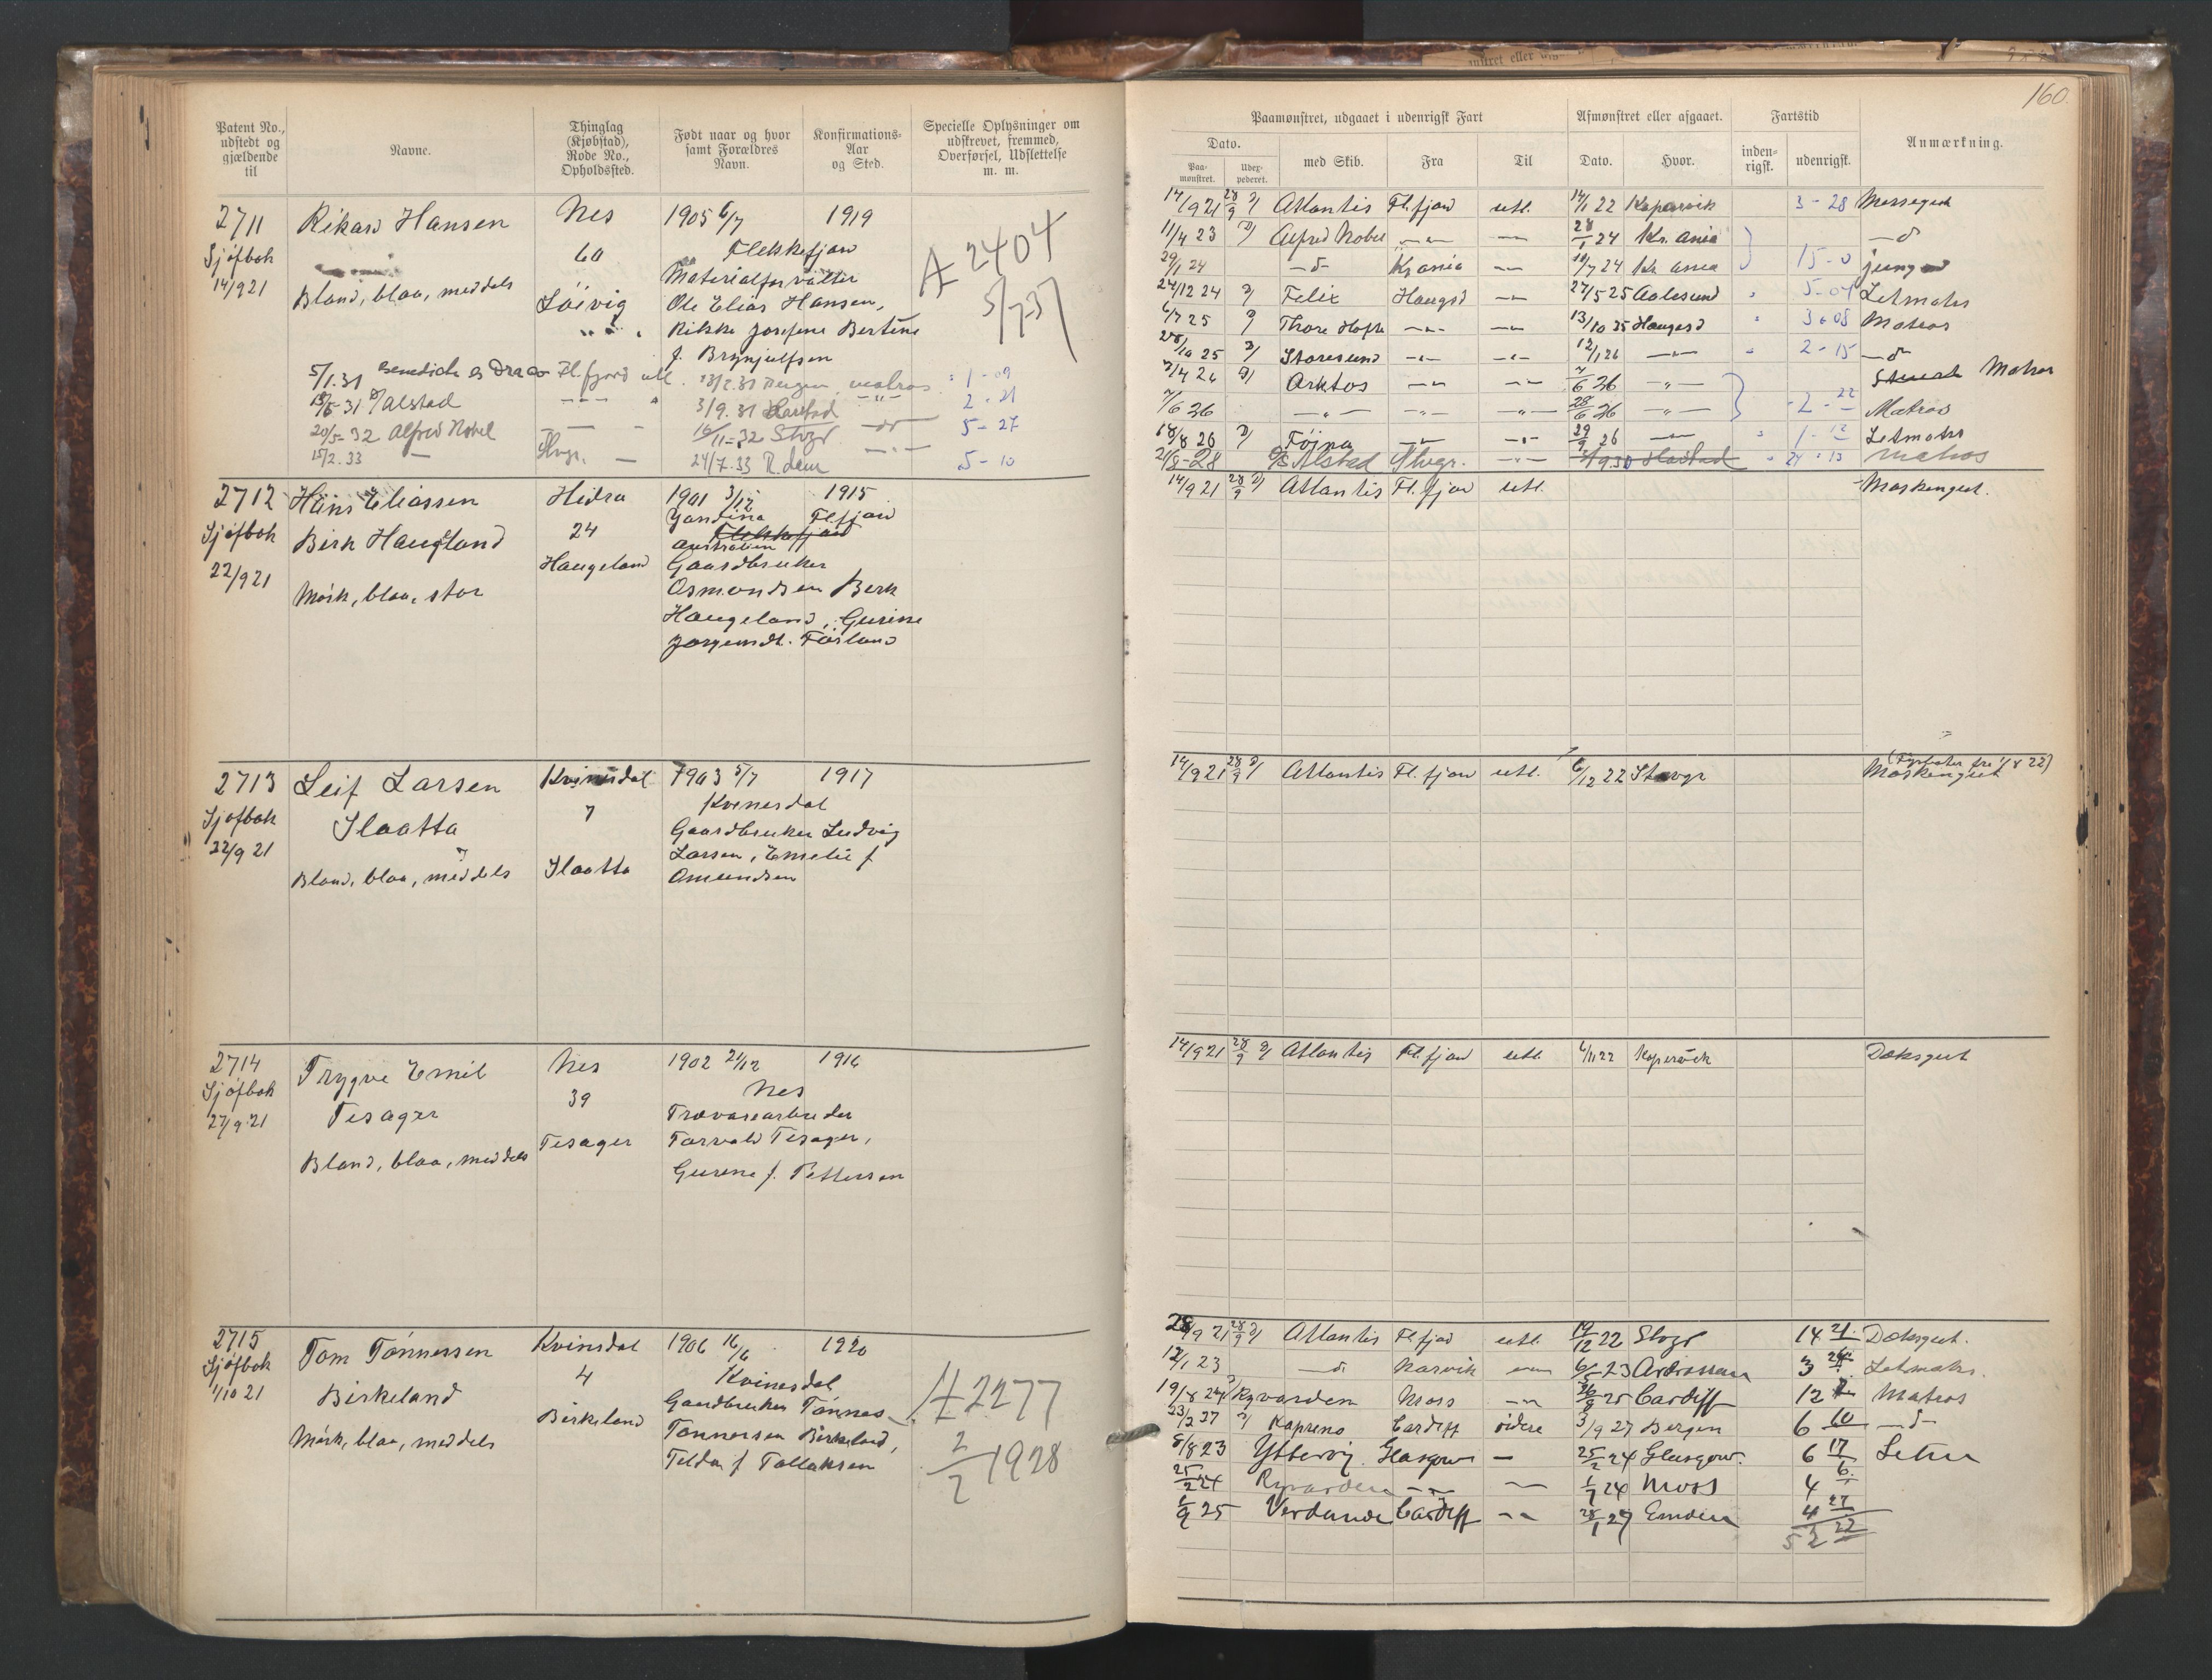 160
Patent No., udstedt og gjældende til
Navne.
Thinglag (Kjøbstad), Rode No., Opholdssted.
Født naar og hvor samt Forældres Navn.
Konfirmations-Aar og Sted.
Specielle Oplysninger om udskrevet, fremmed, Overførsel, Udslettelse m. m.
Paamønstret, udgaaet i udenrigsk Fart
Afmønstret eller afgaaet.
Fartstid
Anmærkning.
Dato.
Paa-mønstret.
Udex-pederet.
med Skib.
Fra
Til
Dato.
Hvor.
inden-rigsk.
udenrigsk.
2711 Rikard Hansen Nes 1905 6/7 1919
Sjøfbok 60 Flekkefjord
14/9 21 Materialforvalter
Blond, blaa, meddels Løivig Ole Elias Hansen,
Rikke Josefine Bertine
f. Brynjulfsen
A 2404
5/7-37
5/1.31 Draco Fl.fjord utl. 13/2.31 Bergen matros 1-09
Alstad 3/9.31 Harstad 2-21
20/5-32 Alfred Nobel 16/11-32 Stvgr 5-27
15/2.33 Stvgr. 24/7-33 R.dam 5-10
14/9 21 28/9 Atlantis Fl.fjord utl. 14/1 22 Kopervik 3-28 Messegut
11/4 23 Alfred Nobel 28/1 24 Kr.ania
29/1 24 Kr.ania 19/7 24 Kr.ania 15-0 jungmd
24/12 24 Felix Haugsd 27/5 25 Aalesund 5-04 Letmatrs
6/7 25 Thore Hafte 13/10 25 Haugesd 3-08 Matros
25 Storesund 12/1 26 2-15
7/4 26 Arktos 7/6 26 Matros
7/6 26 28/6 26 2-22 Matros
18/8 26 Töina 29/9 26 1-12 Letmatrs
21/8-28 D/S Alstad Stvgr. 9.30 Harstad 24-13 matros
2712 Hans Eliassen Hidra 1901 3/12 1915
Sjøfbok Birk Haugland 24 Yandina Fl.fjord
Flekkefjord
Australien
22/9 21 Haugeland Gaardbruker
Mørk, blaa, stor Osmondsen Berk
Haugeland, Gurine
Jørgensdt. Førland
14/9 21 28/9 Atlantis Fl.fjord utl. Maskengut.
2713 Leif Larsen Kvinesdal 1903 5/7 1917
Sjøfbok Slaatta 7 Kvinesdal
22/9 21 Gaardbruker Ludvig
Blond, blaa, meddels Slaatta Larsen, Emelie f
Omundsen
14/9 21 28/9 Atlantis Fl.fjord utl. 6/12 22 Stavgr Maskengut
(Fyrbøter fra 1/8 22)
2714 Trygve Emil Nes 1902 21/12 1916
Sjøfbok Tesager 39 Nes
27/9 21 Trævarearbeider
Blond, blaa, meddels Tesager Torvald Tesager,
Gurine f. Pettersen
14/9 21 28/9 Atlantis Fl.fjord utl. 6/11 22 Kopervik Dæksgut
2715 Tom Tønnessen Kvinesdal 1906 16/6 1920
Sjøfbok Birkeland 4 Kvinesdal
1/10 21 Gaardbruker Tønnes
Mørk, blaa, meddels Birkeland Tønnessen Birkeland,
Telda f Tollaksen
A 2277
2/2 1928
28/9 21 28/9 Atlantis Fl.fjord utl. 19/12 22 Stvgr 14 21 Dæksgut.
12/1 23 Narvik 6/5 23 Ardrossan 3 24 Letmatrs.
19/8 24 Ryvarden Moss 25 Cardiff 12 Matros
23/2 27 Kapreno Cardiff videre 3/9 27 Bergen 6 10
8/8 23 Yttervig Glasgow 25/2 24 Glasgow. 6 17 Letm
25/2 24 Ryvarden 1/7 24 Moss 4 6
1/9 25 Verdande Cardiff 28/1 27 Emden 4 27
52 22